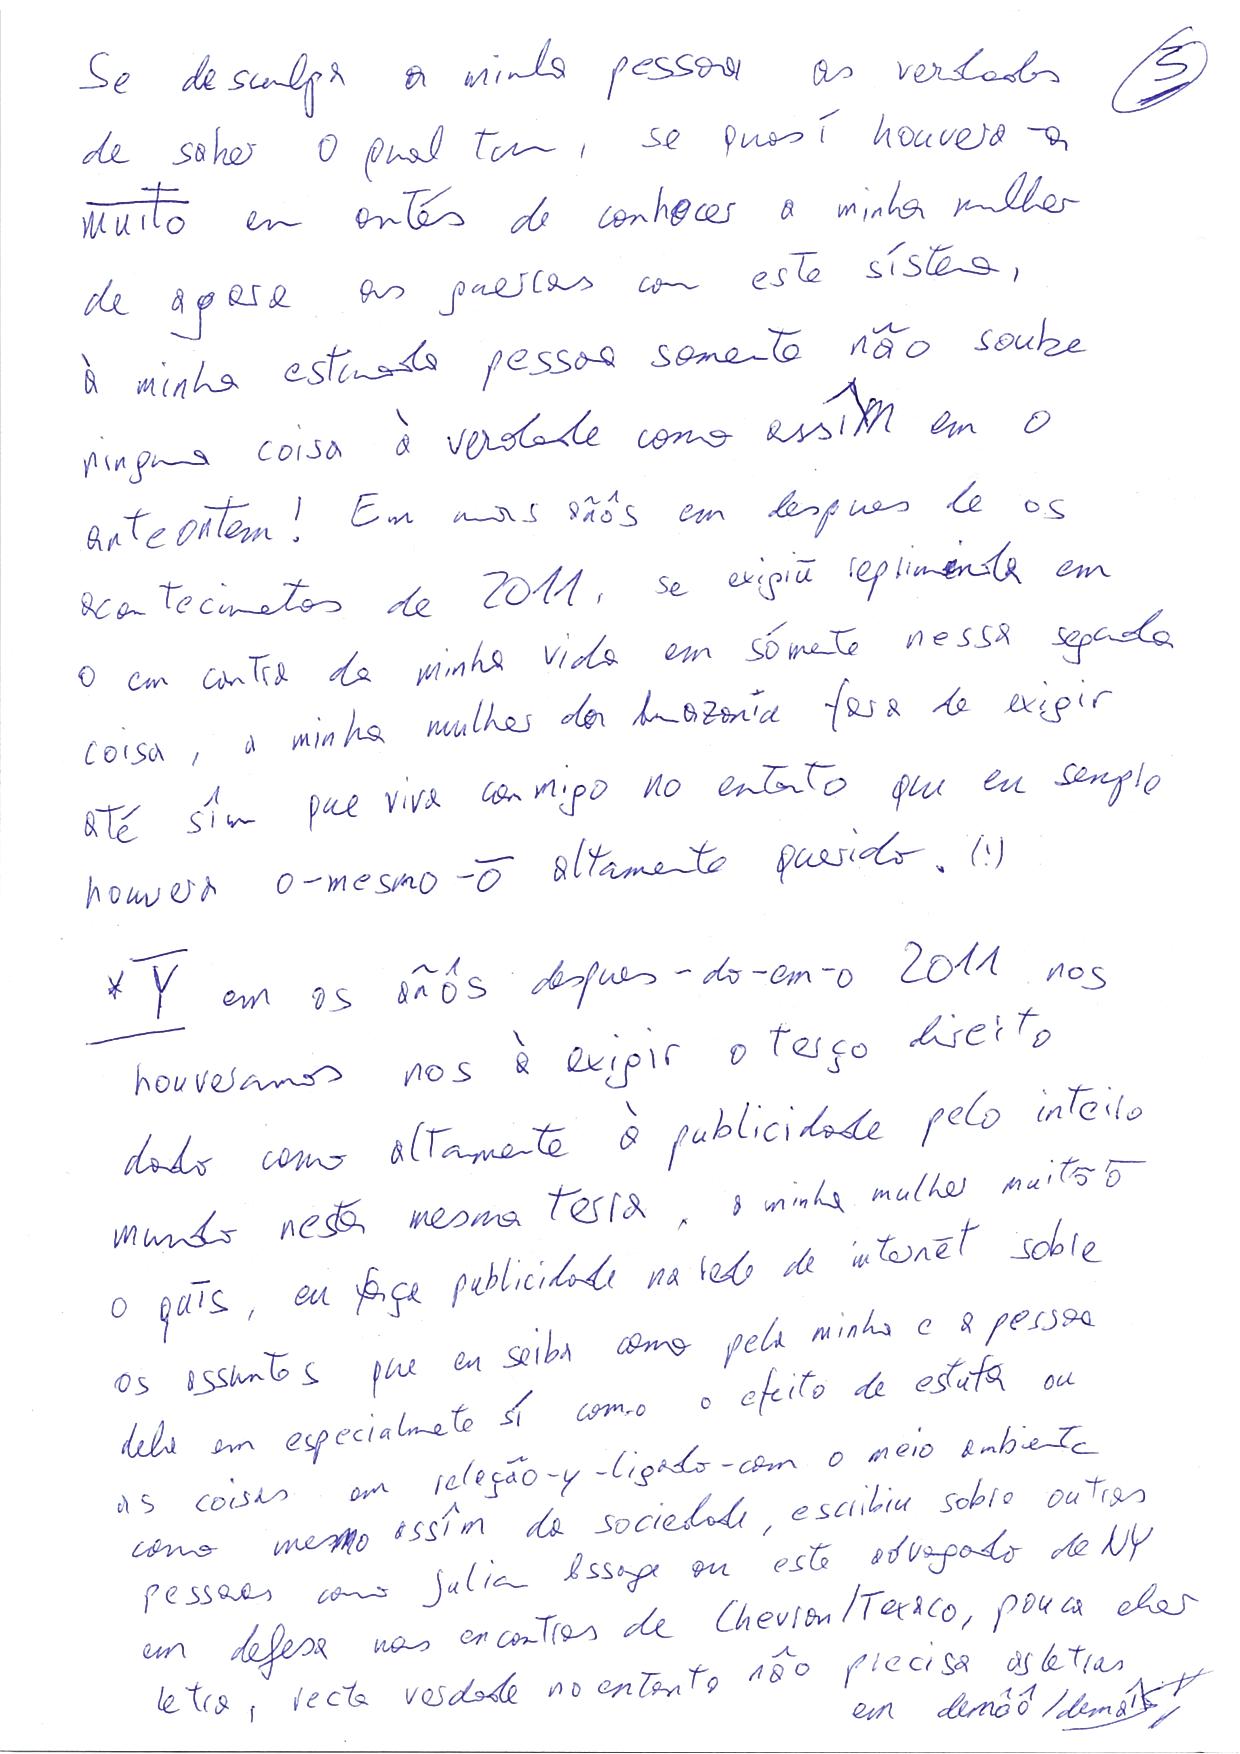 Se desculpa a minha pessoa as verdades 5
de saber o qual tem, se quasí houvera-a
muito em antés de conhocer a minha mulher
de agora as guerras con este sístema,
à minha estimada pessoa somente não soube
ninguna coisa à verdade como assîm em o
anteontem! Em mais añôs em despues de os
acontecimetos de 2011, se exigiū reprimenda em
o em contra da minha vida em sómente nessa segunda
coisa, a minha mulher da Amazonia fora de exigir
até sîm que viva conmigo no entanto que eu sempre
houvera o-mesmo-ō altamente querido. (!)
* Y em os añôs despues-do-em-o 2011 nos
houveramos nos à exigir o terço direito
dado como altamente à publicidade pelo inteiro
mundo nesta mesma terra, a minha mulher muitoō
o qaīs, eu faça publicidade na rede de internēt sobre
os assuntos que eu seiba como pela minha e a pessoa
dela em especialmete sí como o efeito de estufa ou
as coisas em relação-y-ligado-com o meio ambiente
como mesmo assîm da sociedade, escribiu sobre outras
pessoas como Julian Assage ou este advogado de NY
em defesa nas encontras de Chevron/Texaco, pouca
letra, recta verdade no entanto nâo precisa as letras
em demâô/demāîs!